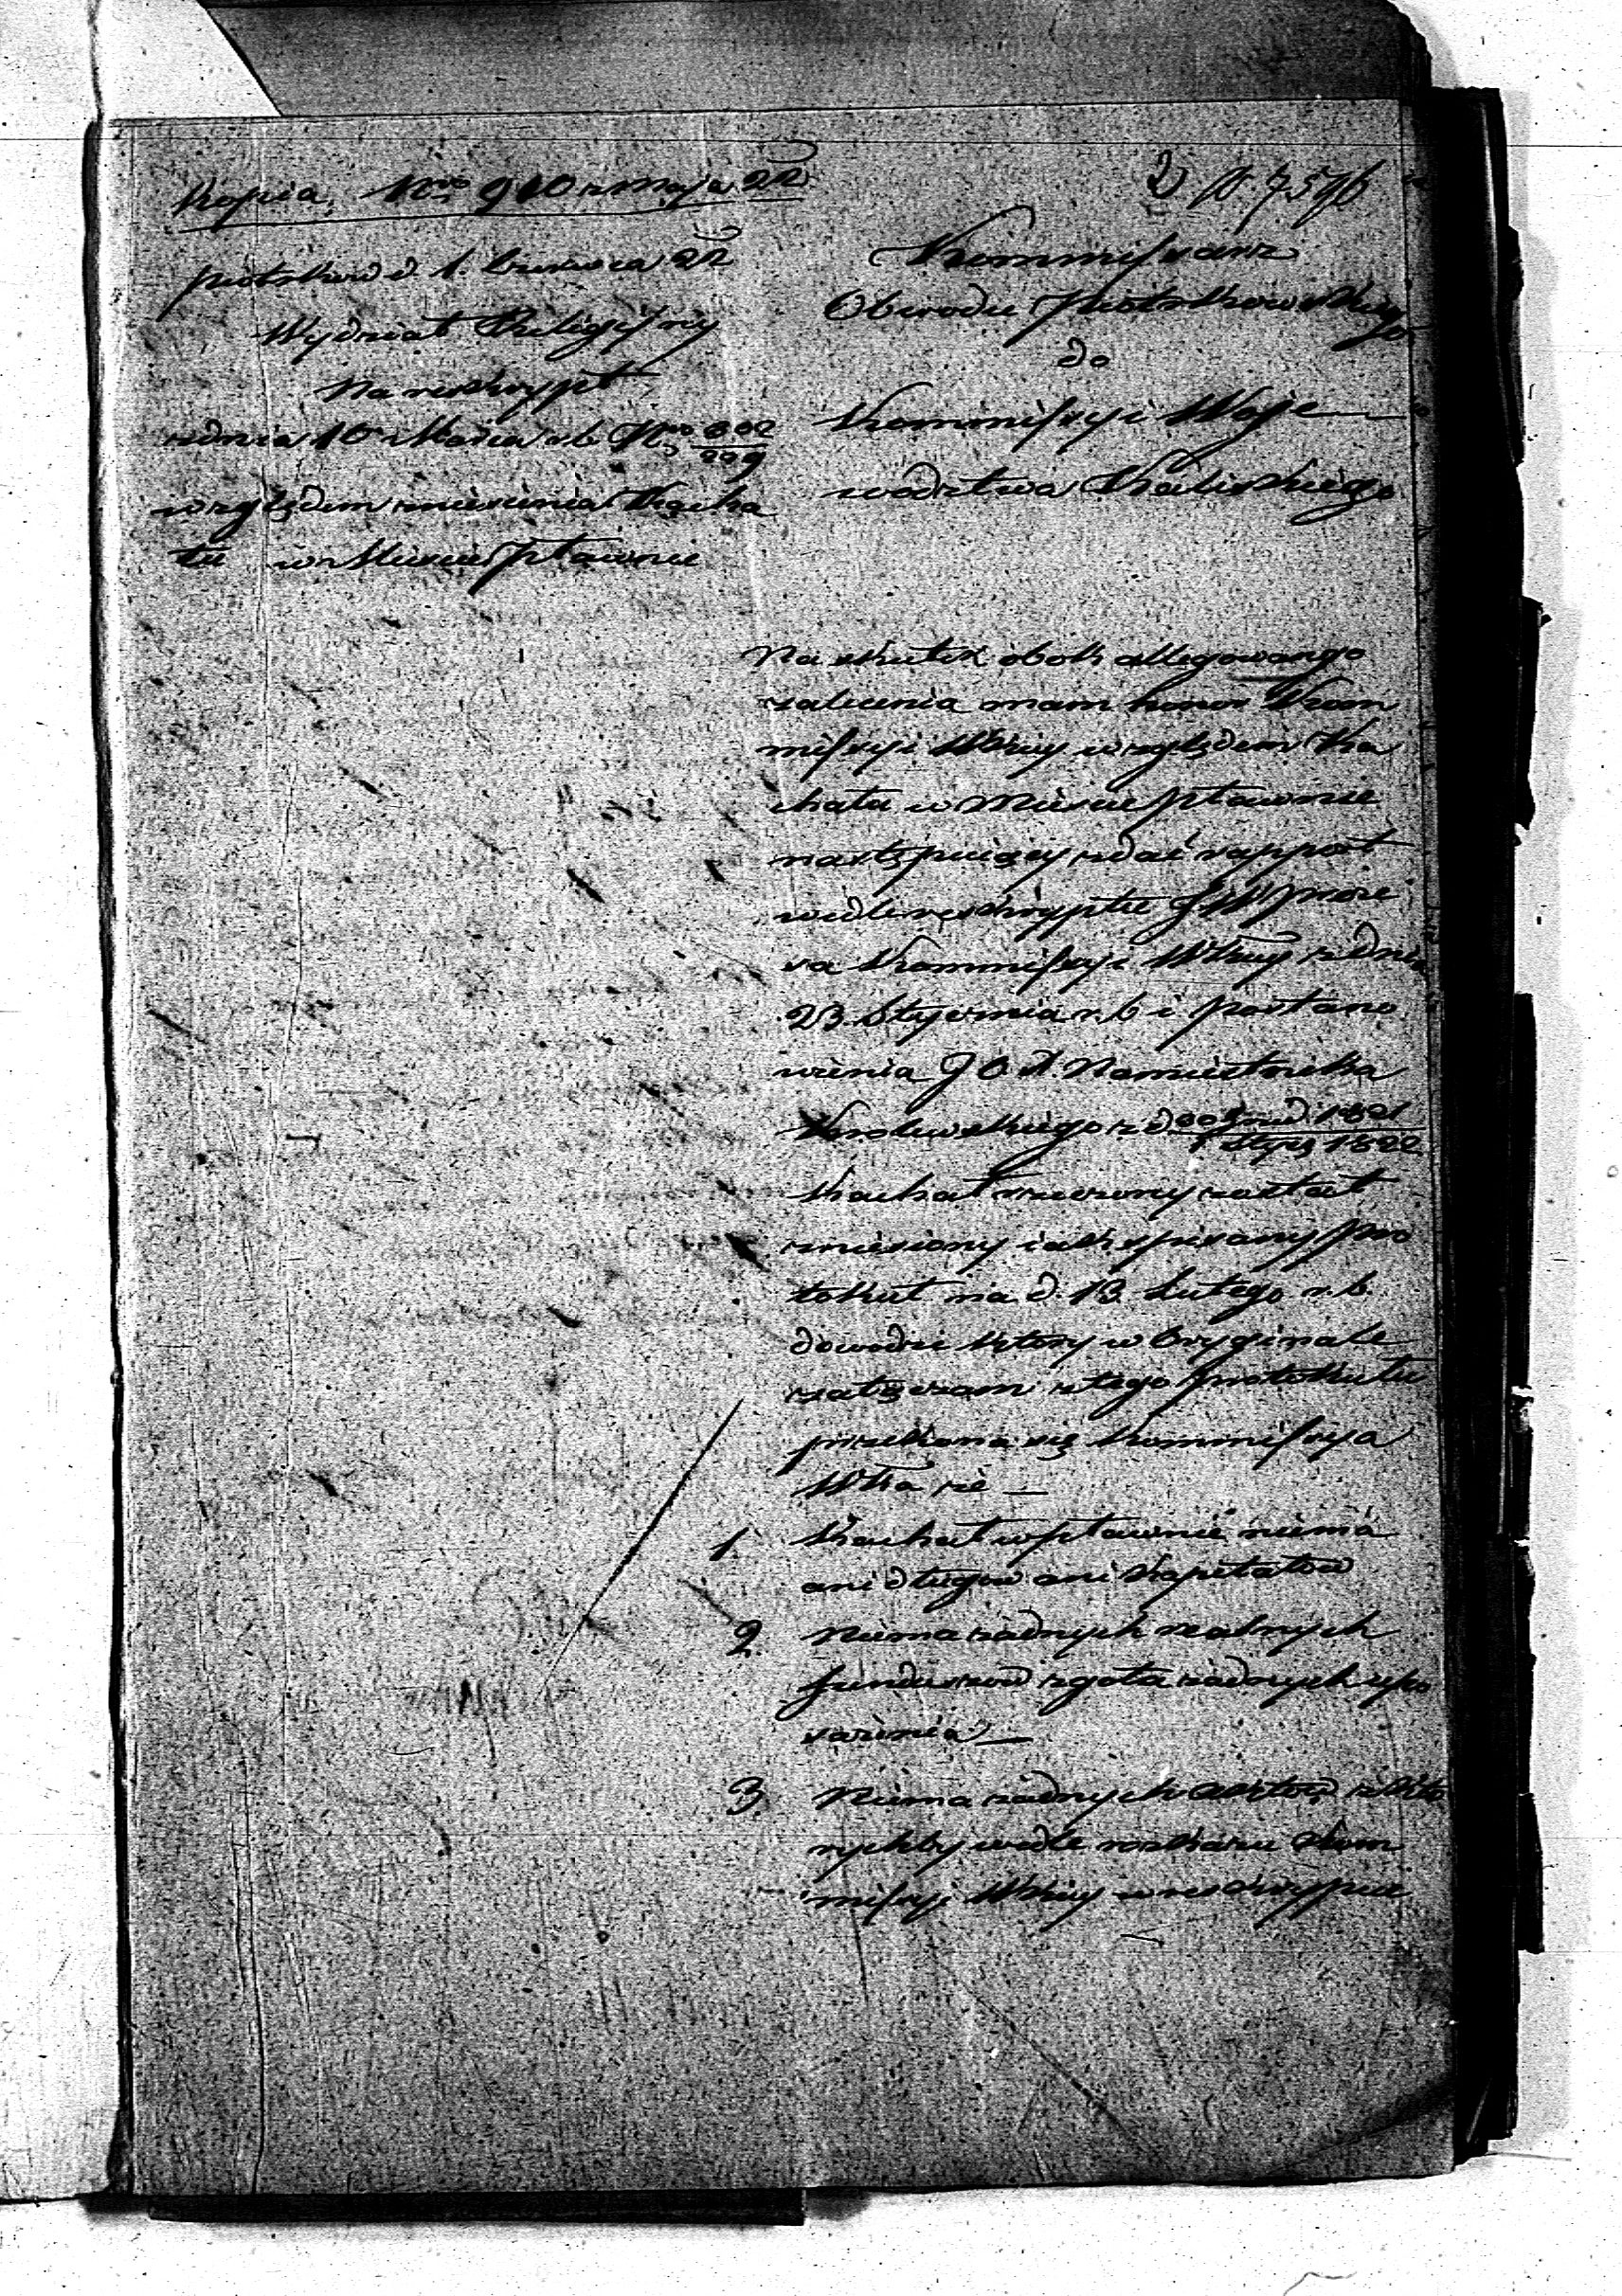 Kopia. Nro 910 z Maja 22
Piotrków d 1. Czerwca 22
Wydział Religijny
Na reskrypt
z dnia 10 Marca r.b. Nro
względem zniesienia Kacha
łu w Mieście Pławnie
2) N. 7596
Kommissarz
Obwodu Piotrkowskiego
do
Kommissyi Woje
wodztwa Kaliskiego
Na skutek obok allegowango
zalecenia mam honor Kom
missyi Wkiey względem Ka
chału w Mieście Pławnie
następuiący zdać rapport
wedle reskryptu JW Preze
sa Kommissyi Wkiey z dnia
23. Stycznia r.b i postano
wienia J O X. Namiestnika
Krolewskiego z d 20 Grud 1821 / 1 Stycz 1822
Kachał rzeczony został
zniesiony iak spisany pro
tokuł na d. 13 Lutego r.b.
dowodzi który w Oryginale
załączam z tego protokułu
przekona się Kommissya
Wka że —
1 Kachał w Pławnie niema
ani długow ani Kapitałow
2. Niema żadnych realnych
funduszow zgoła żadnych upo
sażenia —
3. Niema żadnych aktow z któ
rychby wedle rozkazu Kom
missyi Wkiey w reskrypcie